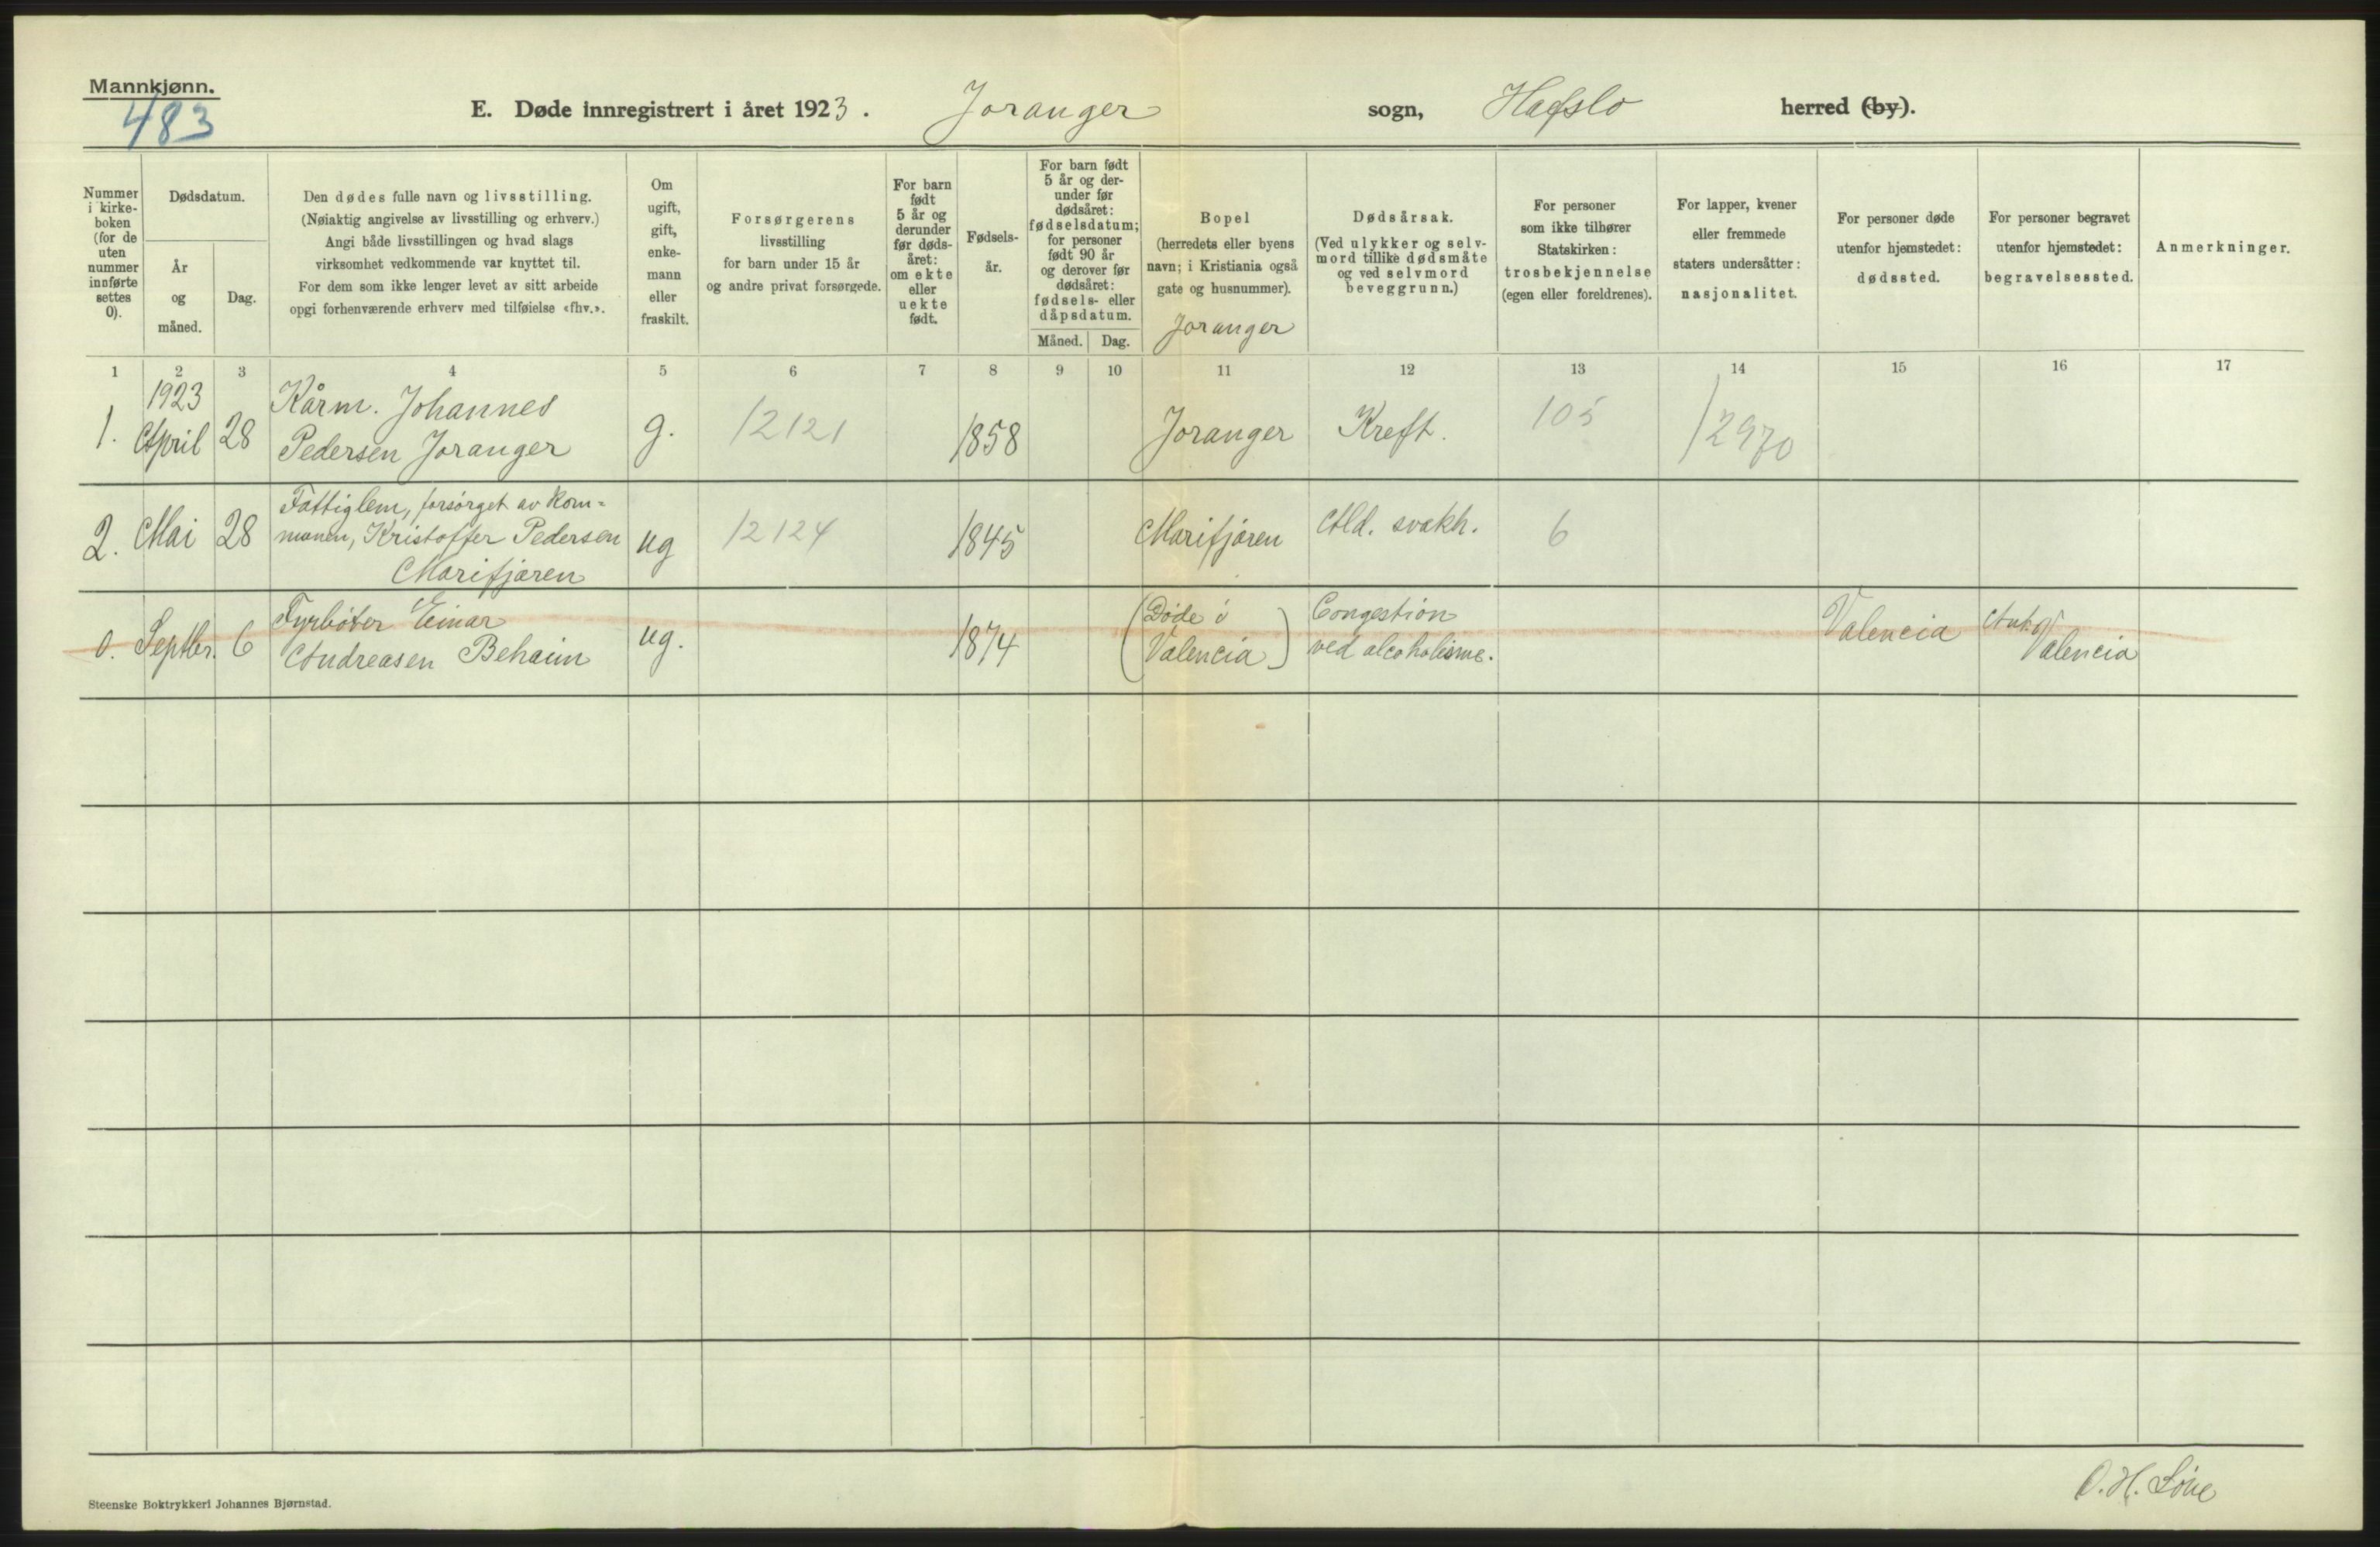 Mannkjønn.
483
E. Døde innregistrert i året 1923. Joranger sogn, Hafslo herred (by).
Nummer
i kirke-
boken
(for de
uten
nummer
innførte
settes
0).
Dødsdatum.
År
og
måned.
Dag.
Den dødes fulle navn og livsstilling.
(Nøiaktig angivelse av livsstilling og erhverv.)
Angi både livsstillingen og hvad slags
virksomhet vedkommende var knyttet til.
For dem som ikke lenger levet av sitt arbeide
opgi forhenværende erhverv med tilføielse «fhv.».
Om
ugift,
gift,
enke-
mann
eller
fraskilt.
Forsørgerens
livsstilling
for barn under 15 år
og andre privat forsørgede.
For barn
født
5 år og
derunder
før døds-
året:
om ekte
eller
uekte
født.
Fødsels-
år.
For barn født
5 år og der-
under før
dødsåret:
fødselsdatum;
for personer
født 90 år
og derover før
dødsåret:
fødsels- eller
dåpsdatum.
Måned. Dag.
Bopel
(herredets eller byens
navn; i Kristiania også
gate og husnummer).
Joranger
Dødsårsak.
(Ved ulykker og selv-
mord tillike dødsmåte
og ved selvmord
beveggrunn.)
For personer
som ikke tilhører
Statskirken:
trosbekjennelse
(egen eller foreldrenes).
For lapper, kvener
eller fremmede
staters undersåtter:
nasjonalitet.
For personer døde
utenfor hjemstedet:
dødssted.
For personer begravet
utenfor hjemstedet:
begravelsessted.
Anmerkninger.
1 2 3 4 5 6 7 8 9 10 11 12 13 14 15 16 17
1923
1. April 28
Kårm. Johannes
Pedersen Joranger
g. 12121 1858 Joranger Kreft. 105 12970
2. Mai 28
Fattiglem, forsørget av kom=
munen, Kristoffer Pedersen
Marifjæren
ug 12124 1845 Marifjæren Ald. svakh. 6
0. Septbr. 6
Fyrbøter Einar
Andreasen Behaim
ug. 1874
(Døde i
Valencia)
Congestion
ved alcoholisme.
Valencia
Valencia
Steenske Boktrykkeri Johannes Bjørnstad.
O. H. Løne